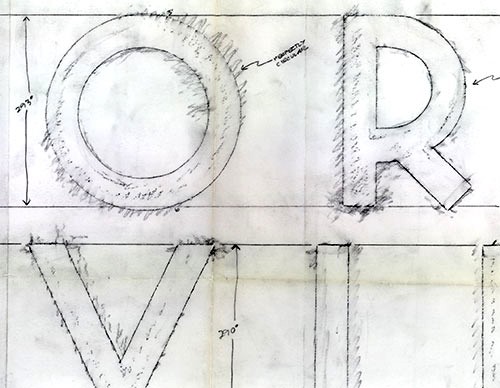 O R
2.93"
PERFECTLY
CIRCULAR
V
2.90"